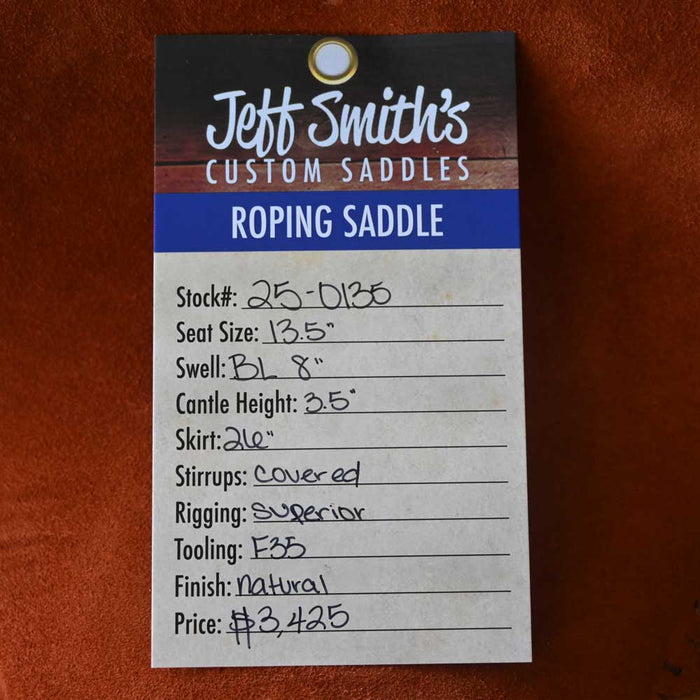 Jeff Smith's
CUSTOM SADDLES
ROPING SADDLE
Stock#: 25-0135
Seat Size: 13.5"
Swell: BL 8"
Cantle Height: 3.5"
Skirt: 26"
Stirrups: covered
Rigging: superior
Tooling: F35
Finish: natural
Price: $3,425